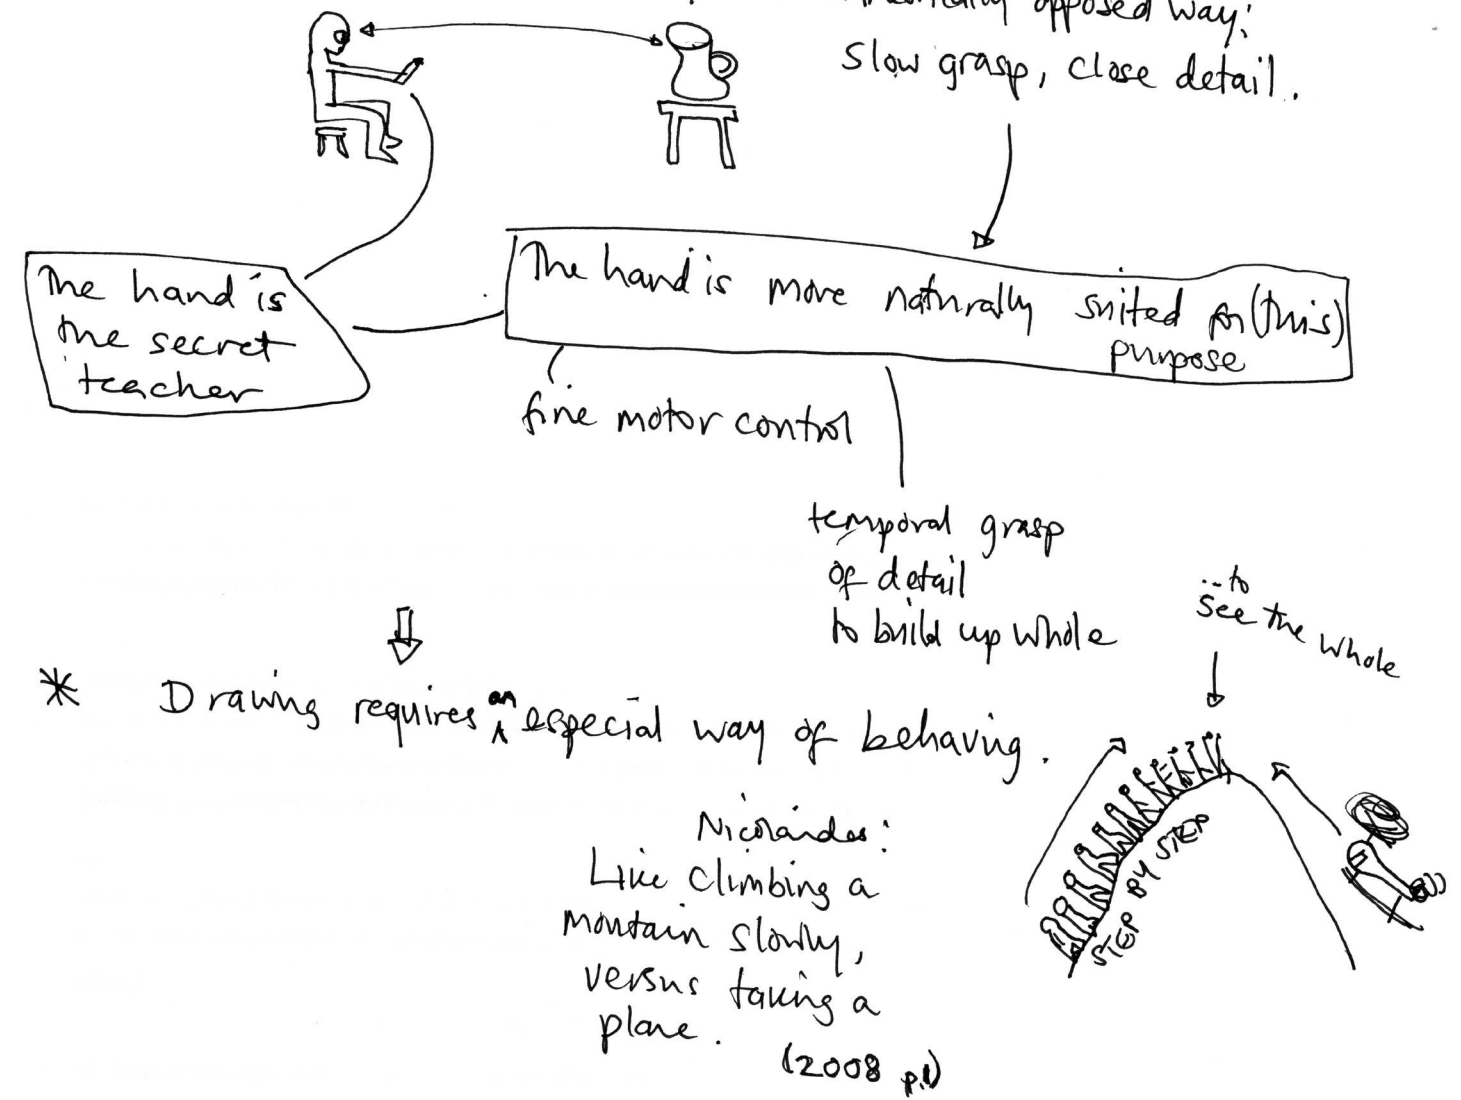 opposed way:
slow grasp, close detail.
The hand is
the secret
teacher
The hand is more naturally suited for (this)
purpose
fine motor control
temporal grasp
of detail
to build up whole
... to
see the whole
* Drawing requires an especial way of behaving.
STEP BY STEP
Nicolaides:
Like climbing a
mountain slowly,
versus taking a
plane.
(2008 p.1)